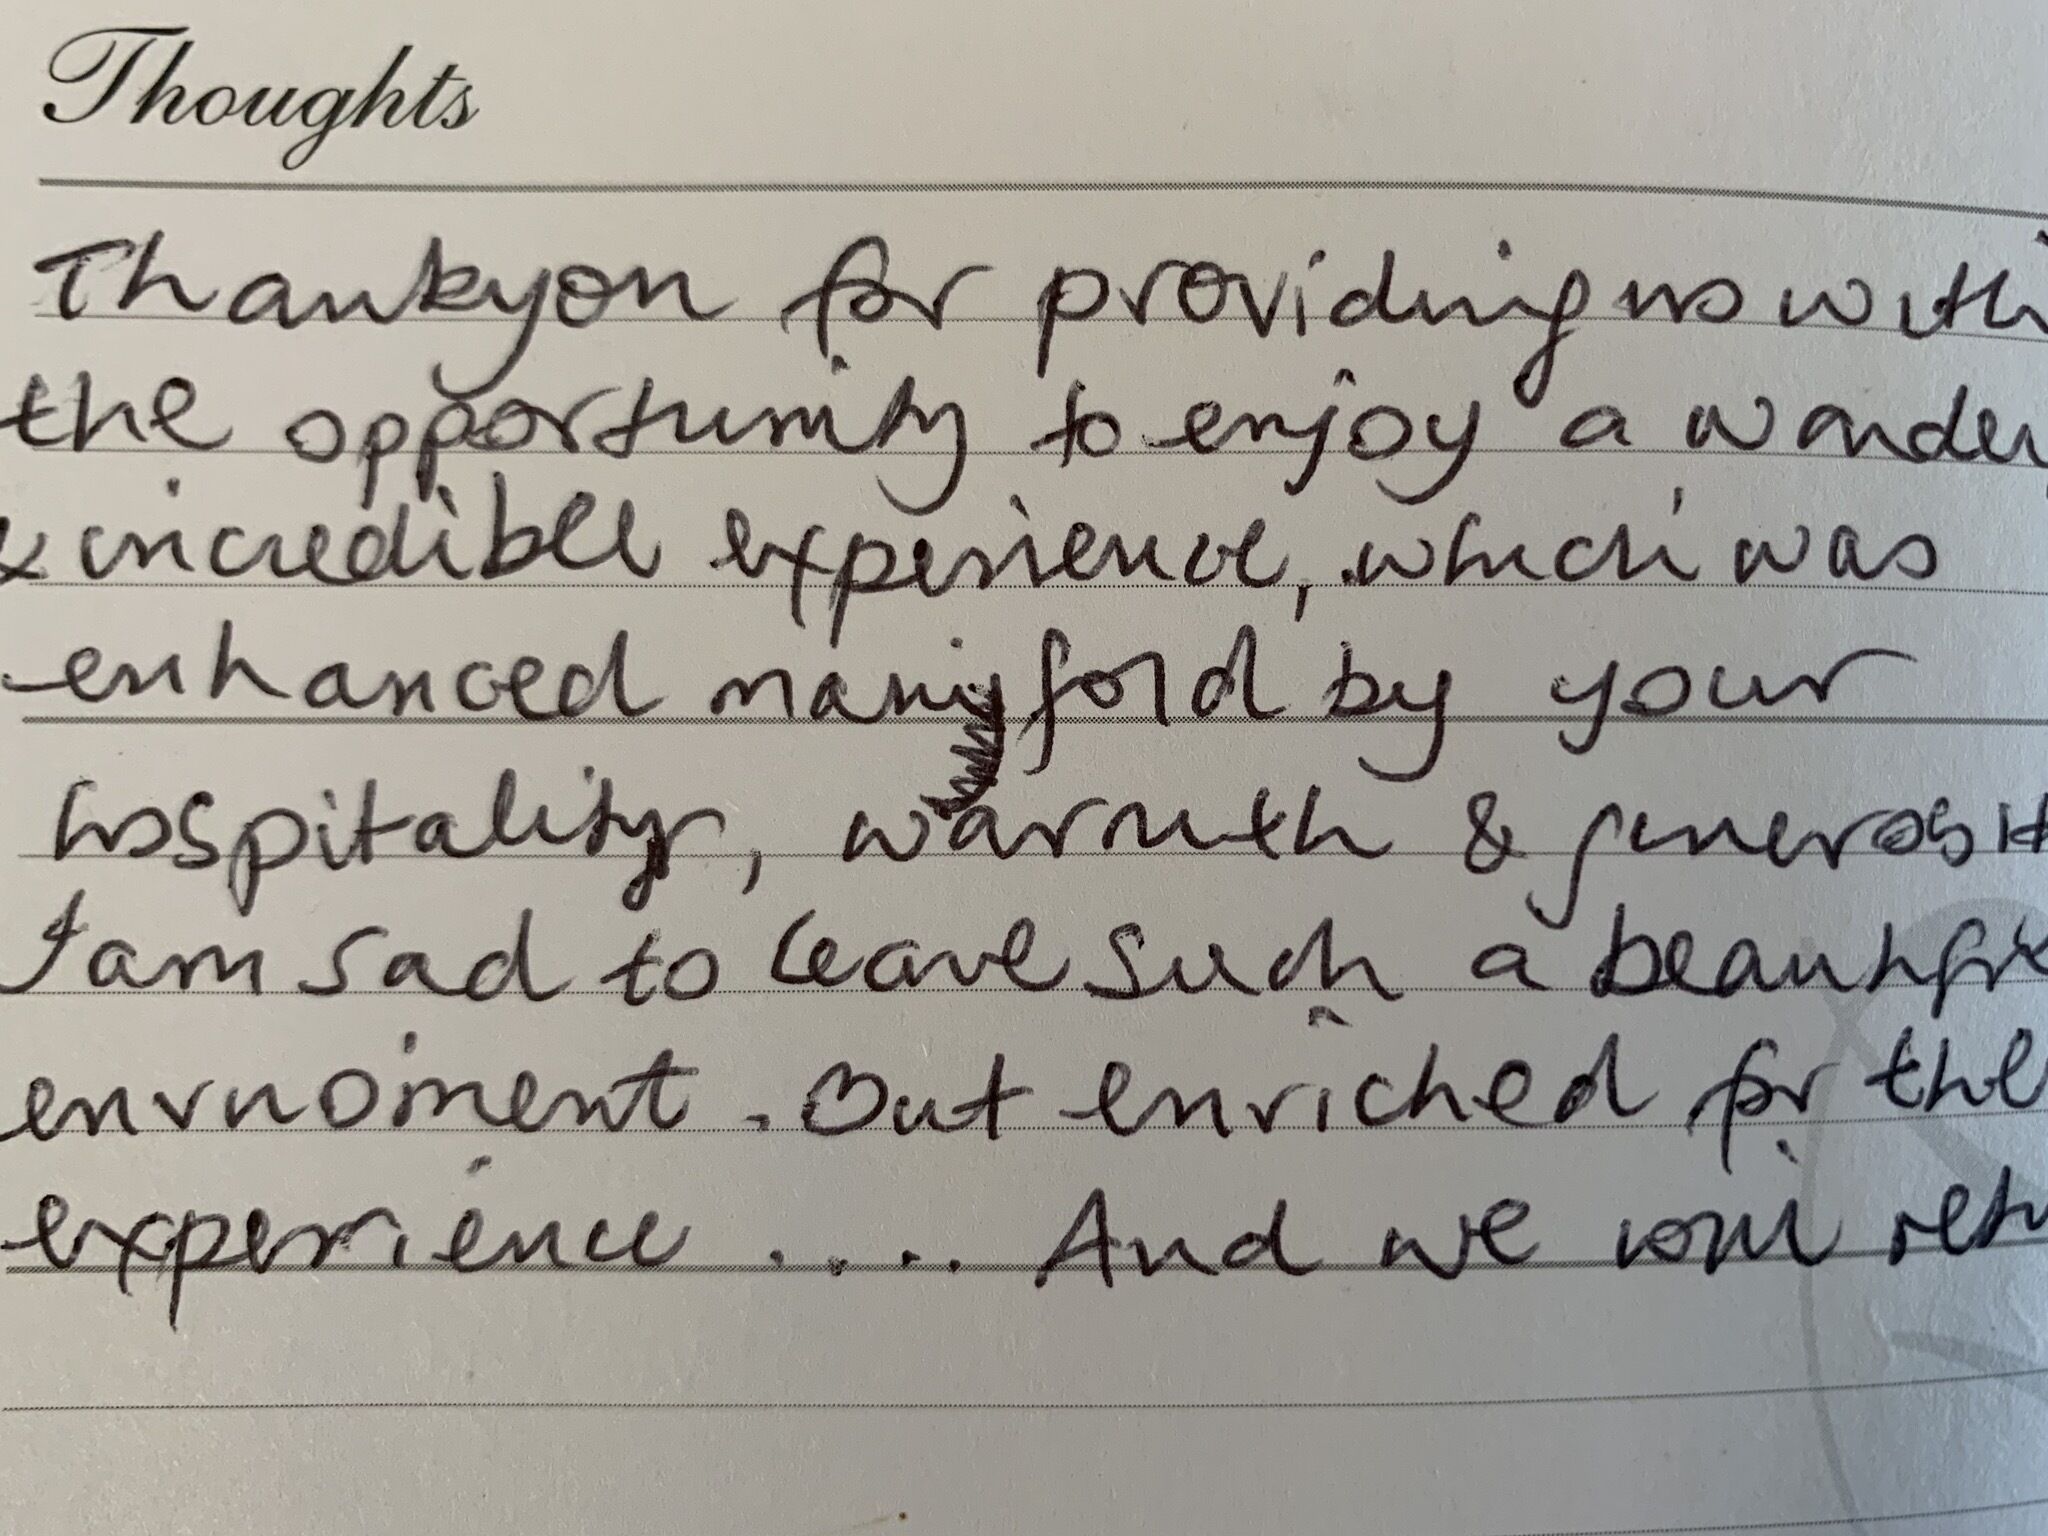 Thoughts
Thankyou for providing us with
the opportunity to enjoy a wonder
& incredible experience, which was
enhanced manifold by your
hospitality, warmth & generosit
I am sad to leave such a beautiful
envrioment. But enriched for the
experience .... And we will retu